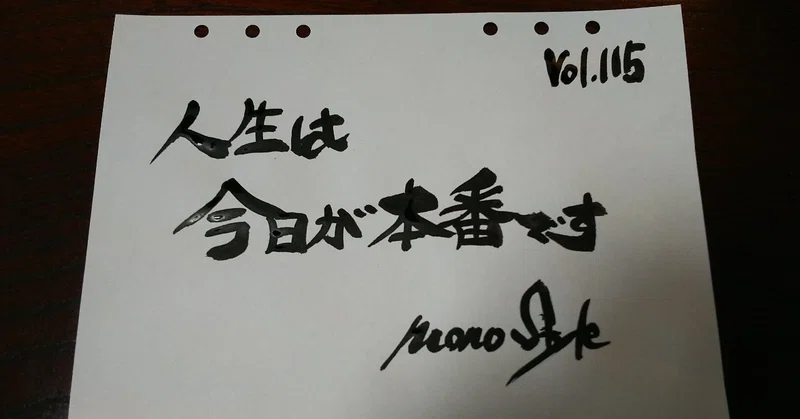 Vol.115
人生は
今日が本番です
mono Style